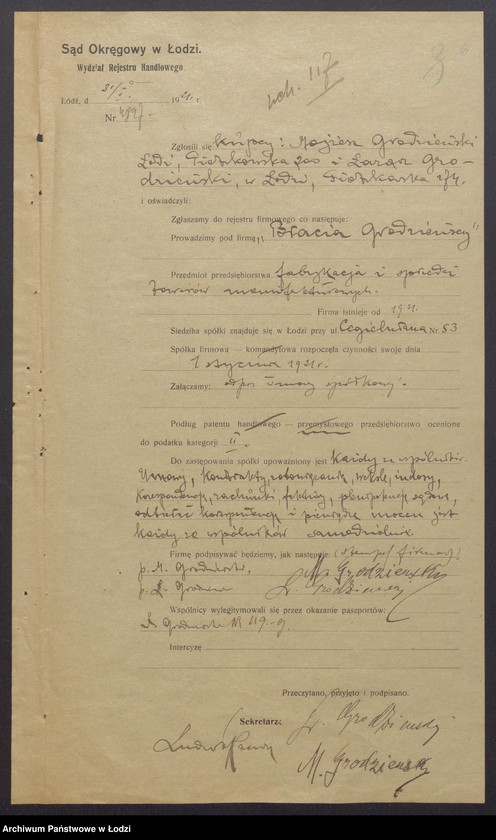 Sąd Okręgowy w Łodzi.
Wydział Rejestru Handlowego.
Łódź, d 31/I 1921 r
Nr 
3
Zgłosili się Kupcy: Mojżesz Grodzieński
Łódź, Piotrkowska 200 i Łazarz Gro-
dzieński, w Łodzi, Piotrkowska
i oświadczyli:
Zgłaszamy do rejestru firmowego co następuje:
Prowadzimy pod firmą „Bracia Grodzieńscy"
Przedmiot przedsiębiorstwa fabrykacja i sprzedaż
towarów manufakturowych.
Firma istnieje od 1921.
Siedziba spółki znajduje się w Łodzi przy ul Cegielniana Nr. 53
Spółka firmowa — komandytowa rozpoczęła czynności swoje dnia
1 stycznia 1921 r.
Załączamy: odpis umowy spółkowej.
Podług patentu handlowego — przemysłowego przedsiębiorstwo ocenione
do podatku kategorji II.
Do zastępowania spółki upoważniony jest każdy ze wspólników.
Umowy, kontrakty, zobowiązania, weksle, indosy,
korespondencję, rachunki, plenipotencje
odbierać korespondencję i pieniądze mocen jest
każdy ze wspólników samodzielnie
Firmę podpisywać będziemy, jak następuje: (stempel firmowy)
p. M. Grodzieński, M. Grodzieński
p. Ł. Ł. Grodzieński
Wspólnicy wylegitymowali się przez okazanie paszportów:
Ł. Grodzieński N 119
Intercyzę
Przeczytano, przyjęto i podpisano.
Sekretarz: Ł. Grodzieński
M. Grodzieński
Archiwum Państwowe w Łodzi